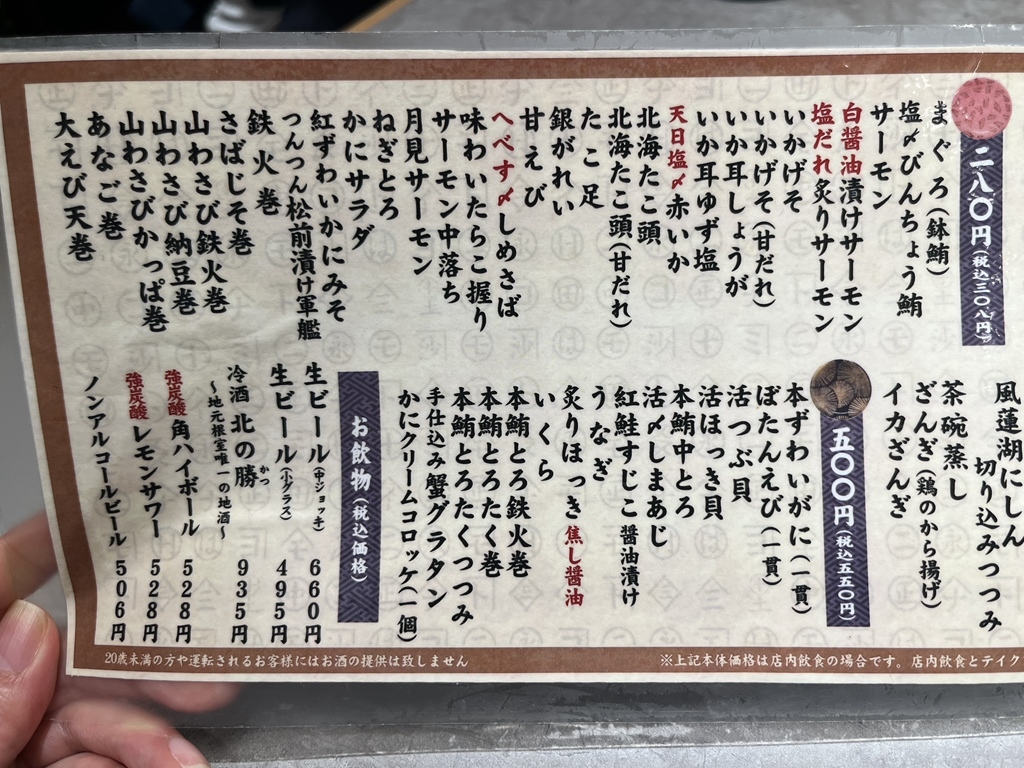 二八〇円(税込三〇八円)
まぐろ(鉢鮪)
塩〆びんちょう鮪
サーモン
白醤油漬けサーモン
塩だれ炙りサーモン
いかげそ
いかげそ(甘だれ)
いか耳しょうが
いか耳ゆず塩
天日塩〆赤いか
北海たこ頭
北海たこ頭(甘だれ)
たこ足
銀がれい
甘えび
へべす〆しめさば
味わいたらこ握り
サーモン中落ち
月見サーモン
ねぎとろ
かにサラダ
紅ずわいかにみそ
つんつん松前漬け軍艦
鉄火巻
さばじそ巻
山わさび鉄火巻
山わさび納豆巻
山わさびかっぱ巻
あなご巻
大えび天巻
風蓮湖にしん
切り込みつつみ
茶碗蒸し
ざんぎ(鶏のから揚げ)
イカざんぎ
五〇〇円(税込五五〇円)
本ずわいがに(一貫)
ぼたんえび(一貫)
活つぶ貝
活ほっき貝
本鮪中とろ
活〆しまあじ
紅鮭すじこ醤油漬け
うなぎ
炙りほっき焦し醤油
いくら
本鮪とろ鉄火巻
本鮪とろたく巻
本鮪とろたくつつみ
手仕込み蟹グラタン
かにクリームコロッケ(一個)
お飲物(税込価格)
生ビール(中ジョッキ) 660円
生ビール(小グラス) 495円
冷酒 北の勝 かつ 935円
〜地元根室唯一の地酒〜
強炭酸角ハイボール 528円
強炭酸レモンサワー 528円
ノンアルコールビール 506円
※上記本体価格は店内飲食の場合です。店内飲食とテイク
20歳未満の方や運転されるお客様にはお酒の提供は致しません